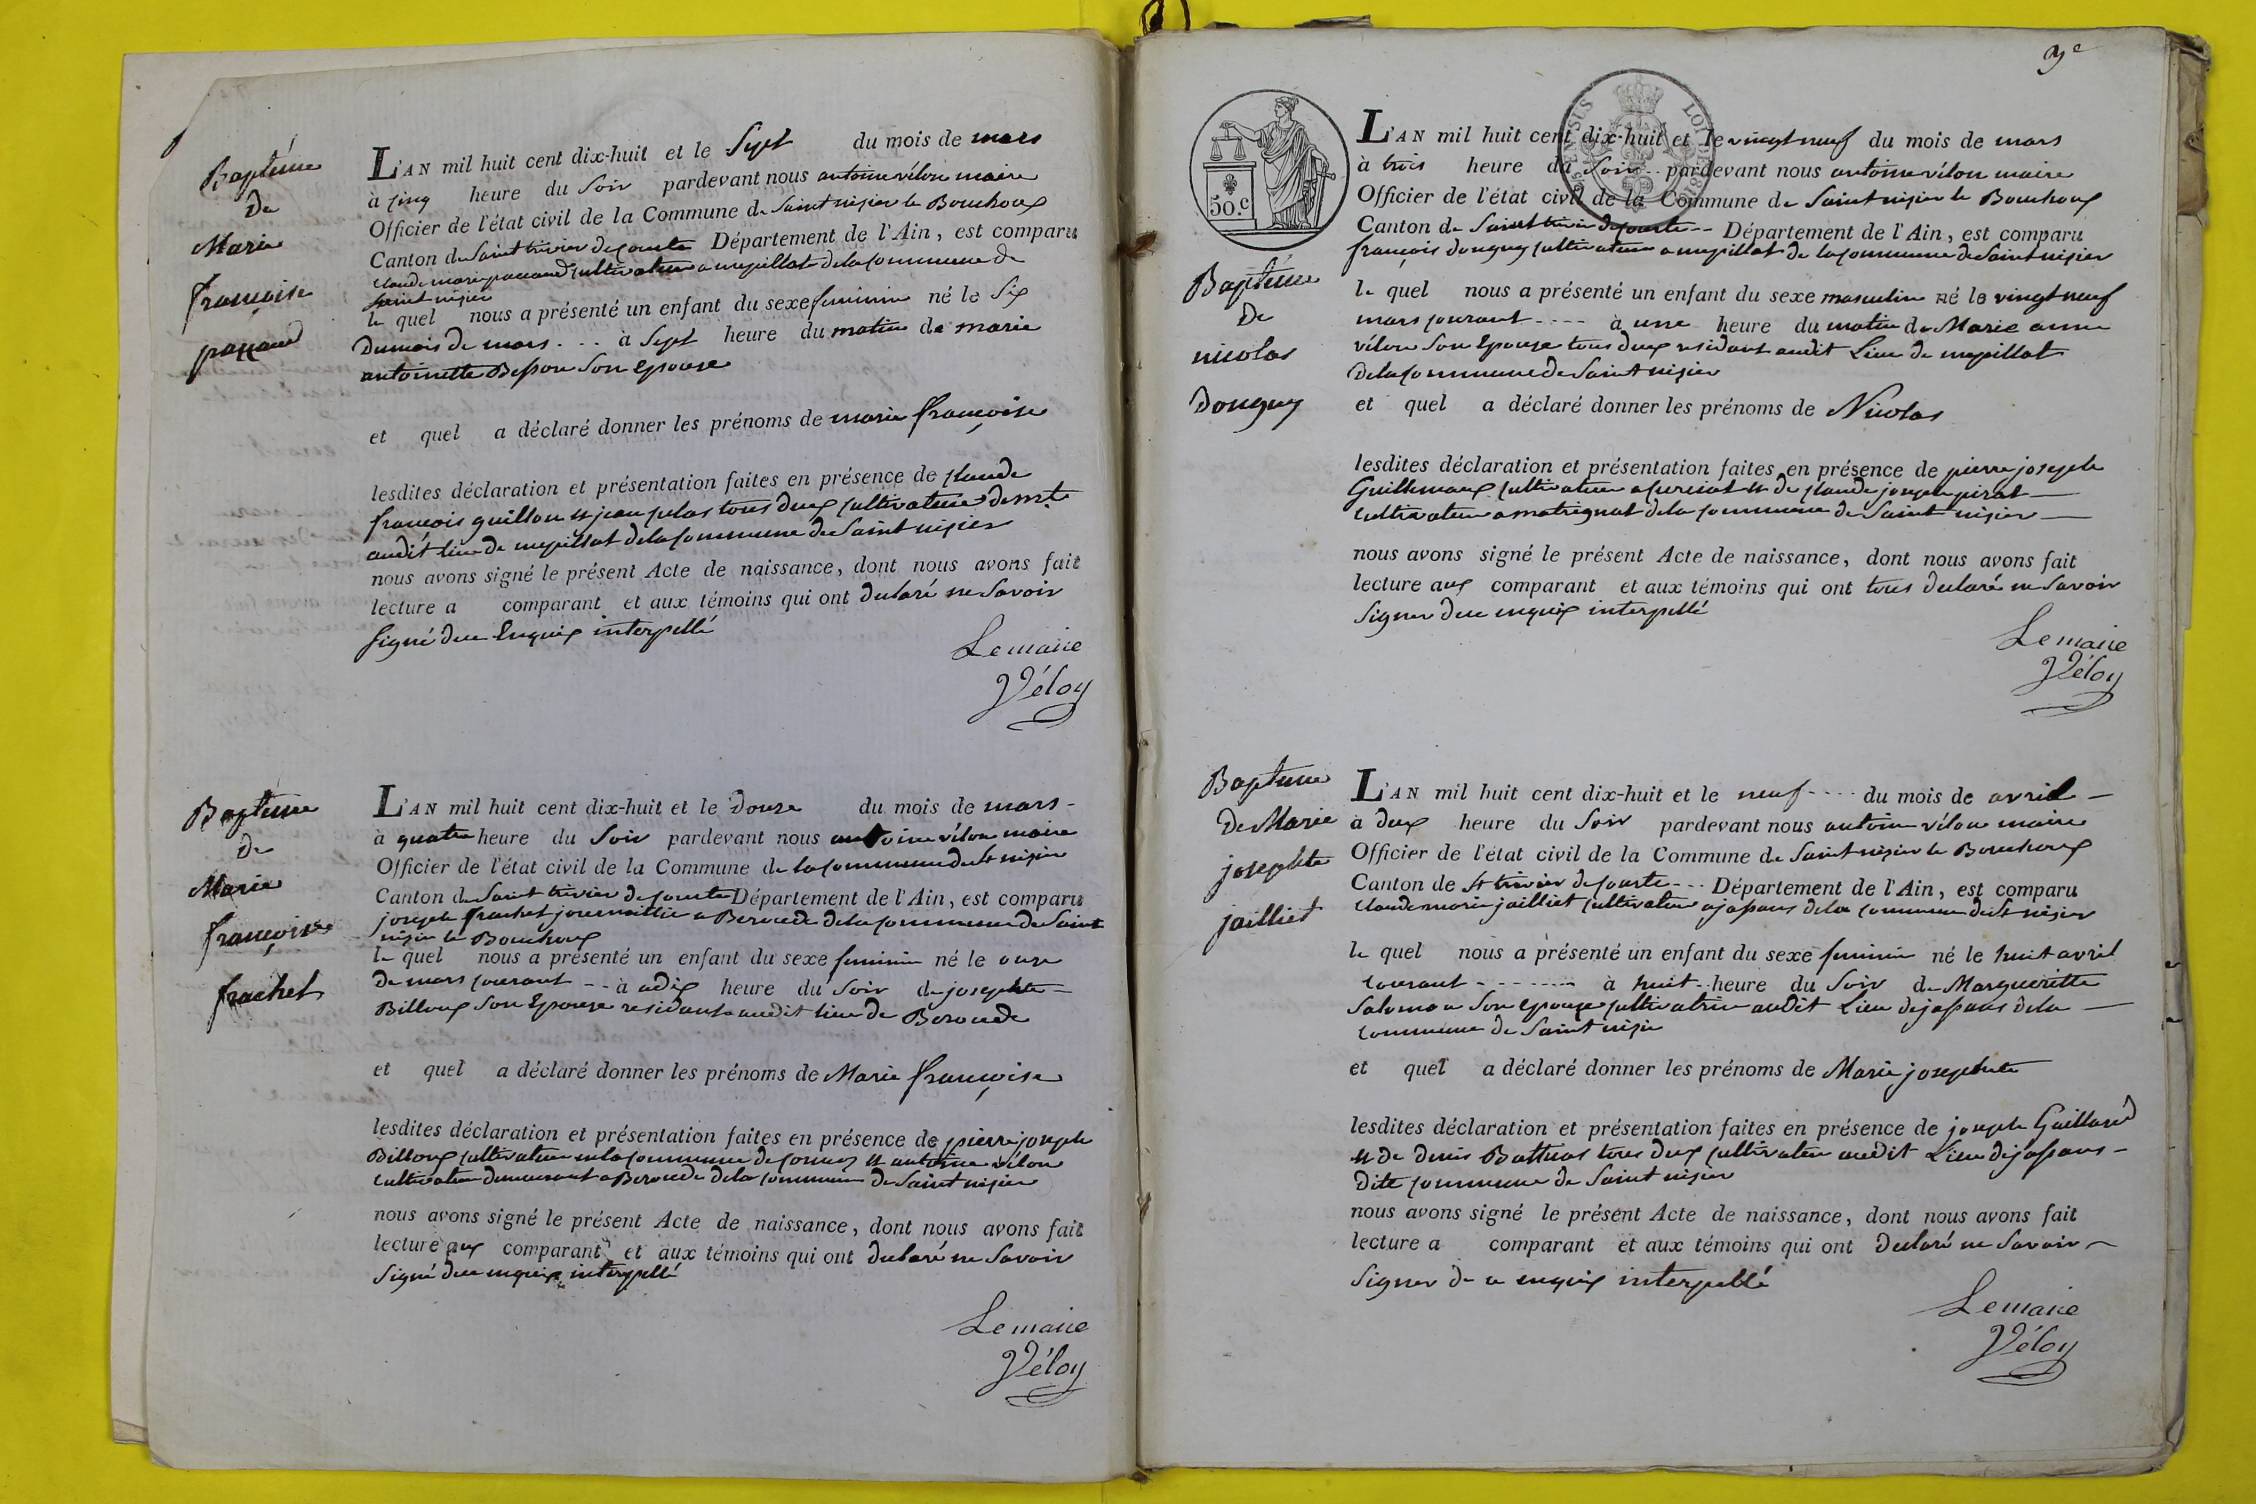 Baptême
de
Marie
françoise
pauaud
L'AN mil huit cent dix-huit et le Sept du mois de mars
à cinq heure du Soir pardevant nous antoine vélon maire
Officier de l'état civil de la Commune de Saint nisier le Bouchoux
Canton de Saint trivier de courte Département de l'Ain, est comparu
claude marie cultivateur a mepillat de la commune de
saint nisier
le quel nous a présenté un enfant du sexe feminin né le six
du mois de mars à Sept heure du matin de marie
antoinette Besson Son Epouse
et quel a déclaré donner les prénoms de marie françoise
lesdites déclaration et présentation faites en présence de claude
françois guillon et jean pelas tous deux cultivateur
audit lieu de mepillat de la commune de Saint nisier
nous avons signé le présent Acte de naissance, dont nous avons fait
lecture a comparant et aux témoins qui ont declaré ne Savoir
Signé de ce Enquix interpellé
Lemaire
Véloy
Baptême
de
Marie
françoise
frachet
L'AN mil huit cent dix-huit et le douze du mois de mars -
à quatre heure du Soir pardevant nous antoine vélon maire
Officier de l'état civil de la Commune de la commune de St nisier
Canton de Saint trivier de courte Département de l'Ain, est comparu
joseph frachet journallier a Beroude de la commune de Saint
nisier le Bouchoux
le quel nous a présenté un enfant du sexe feminin né le onze
de mars courant -- à adix heure du Soir de josephte -
Billoux Son Epouse residant audit lieu de Beroude
et quel a déclaré donner les prénoms de Marie françoise
lesdites déclaration et présentation faites en présence de pierre joseph
Billoux cultivateur en la commune de cormoz et antoine vélon
cultivateur demeurant a Beroude de la commune de Saint nisier
nous avons signé le présent Acte de naissance, dont nous avons fait
lecture aux comparant et aux témoins qui ont declaré ne Savoir
Signé de ce enquix interpellé
Lemaire
Véloy
50.c
LOI DE 1816
Baptême
de
nicolas
Donguy
L'AN mil huit cent dix-huit et le vingt neuf du mois de mars
à trois heure du Soir pardevant nous antoine vélon maire
Officier de l'état civil de la Commune de Saint nisier le Bouchoux
Canton de Saint trivier de courte -- Département de l'Ain, est comparu
françois donguy cultivateur a mepillat de la commune de Saint nisier
le quel nous a présenté un enfant du sexe masculin né le vingt neuf
mars courant ---- à une heure du matin de Marie anne
vélon Son Epouse tous deux residant audit Lieu de mepillat
de la commune de Saint nisier
et quel a déclaré donner les prénoms de Nicolas
lesdites déclaration et présentation faites en présence de pierre joseph
Guillemaux cultivateur a curciat et de claude joseph pirat -
cultivateur a matrignat de la commune de Saint nisier -
nous avons signé le présent Acte de naissance, dont nous avons fait
lecture aux comparant et aux témoins qui ont tous declaré ne Savoir
Signer de ce enquix interpellé
Lemaire
Véloy
Baptême
de Marie
josephte
jailliet
L'AN mil huit cent dix-huit et le neuf ---- du mois de avril -
à deux heure du Soir pardevant nous antoine vélon maire
Officier de l'état civil de la Commune de Saint nisier le Bouchoux
Canton de St trivier de courte --- Département de l'Ain, est comparu
claude marie jailliet cultivateur a jassans de la commune de St nisier
le quel nous a présenté un enfant du sexe feminin né le huit avril
courant -------- à huit heure du Soir de Margueritte
Salomon Son epouse cultivatrice audit Lieu de jassans de la -
commune de Saint nisier
et quel a déclaré donner les prénoms de Marie josephte
lesdites déclaration et présentation faites en présence de joseph Gaillard
et de denis Batthias tous deux cultivateur audit Lieu de jassans -
dite commune de Saint nisier
nous avons signé le présent Acte de naissance, dont nous avons fait
lecture a comparant et aux témoins qui ont declaré ne Savoir
Signer de ce enquix interpellé
Lemaire
Véloy